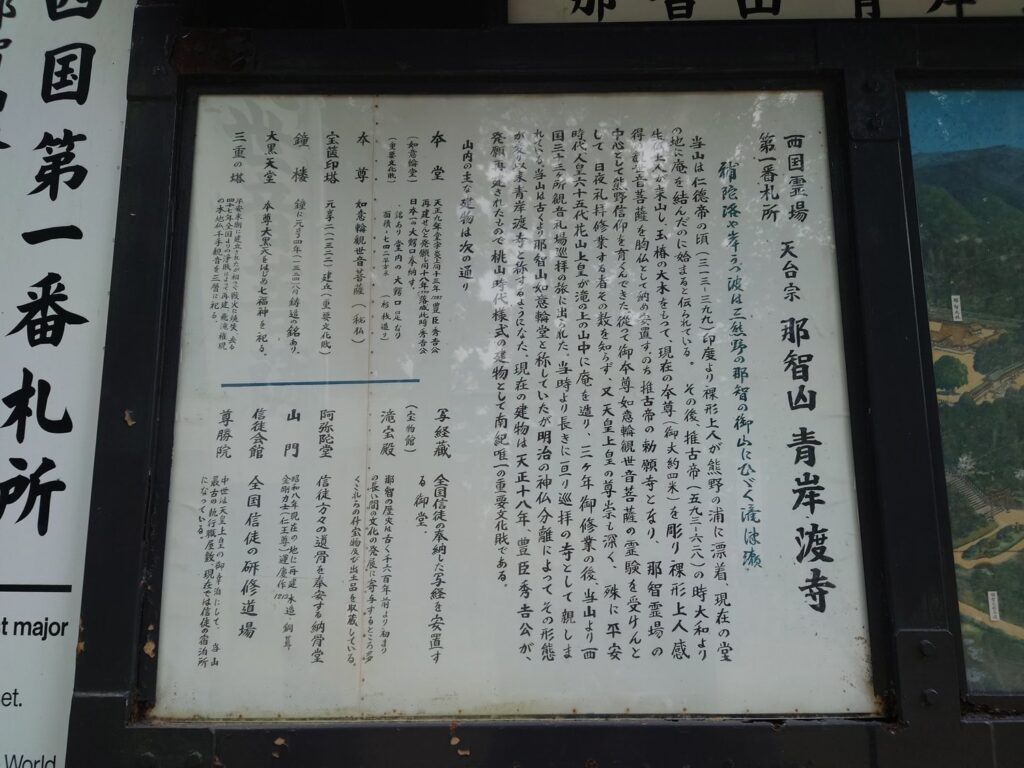 那智山 青岸
西国霊場
第一番札所
天台宗 那智山 青岸渡寺
補陀洛や岸うつ波は三熊野の那智の御山にひびく滝津瀬
当山は仁徳帝の頃(三一三-三九九)印度より裸形上人が熊野の浦に漂着、現在の堂
の地に庵を結んだのに始まると伝られている。 その後、推古帝(五九三-六二八)の時大和より
生佛上人が来山し、玉椿の大木をもって、現在の本尊(御丈約四米)を彫り裸形上人感
得の観音菩薩を胸仏として納め安置す。のち推古帝の勅願寺となり、那智霊場の
中心として熊野信仰を育くんできた。従って御本尊如意輪観世音菩薩の霊験を受けんと
して日夜礼拝修業する者その数を知らず、又天皇上皇の尊崇も深く、殊に平安
時代人皇六十五代花山上皇が滝の上の山中に庵を造り、三ヶ年御修業の後、当山より西
国三十三ヶ所観音礼場巡拝の旅に出られた。当時より長きに亘り巡拝の寺として親しま
れている当山は古くより那智山如意輪堂と称していたが明治の神仏分離によってその形態
が変り以来青岸渡寺と称するようになった。現在の建物は天正十八年、豊臣秀吉公が、
発願再建されたもので桃山時代様式の建物として南紀唯一の重要文化財である。
山内の主な建物は次の通り
本堂
(如意輪堂)
(重要文化財)
本尊 如意輪観世音菩薩(秘仏)
宝篋印塔 元享二(一三二二)建立(重要文化財)
鐘楼 鐘に元享四年(一三二四)鋳造の銘あり。
大黒天堂 本尊大黒天をはじめ七福神を祀る。
三重の塔
の本地仏千手観音を三層に祀る。
写経蔵 全国信徒の奉納した写経を安置す
る御堂。
滝宝殿
(宝物館)
那智の歴史は古く千六百年前より始まり
の長い間の文化の発展に寄与するところ
くこれらの什宝物及び出土品を収蔵している。
阿弥陀堂 信徒方々の遺骨を奉安する納骨堂
山門 昭和八年現在の地に再建
金剛力士(仁王尊)運慶作
信徒会館 全国信徒の研修道場
尊勝院 中世は天皇上皇の御幸泊にして、当山
最古の執行職屋敷、現在では信徒の宿泊所
になっている。
四国第一番札所
t major
et.
World